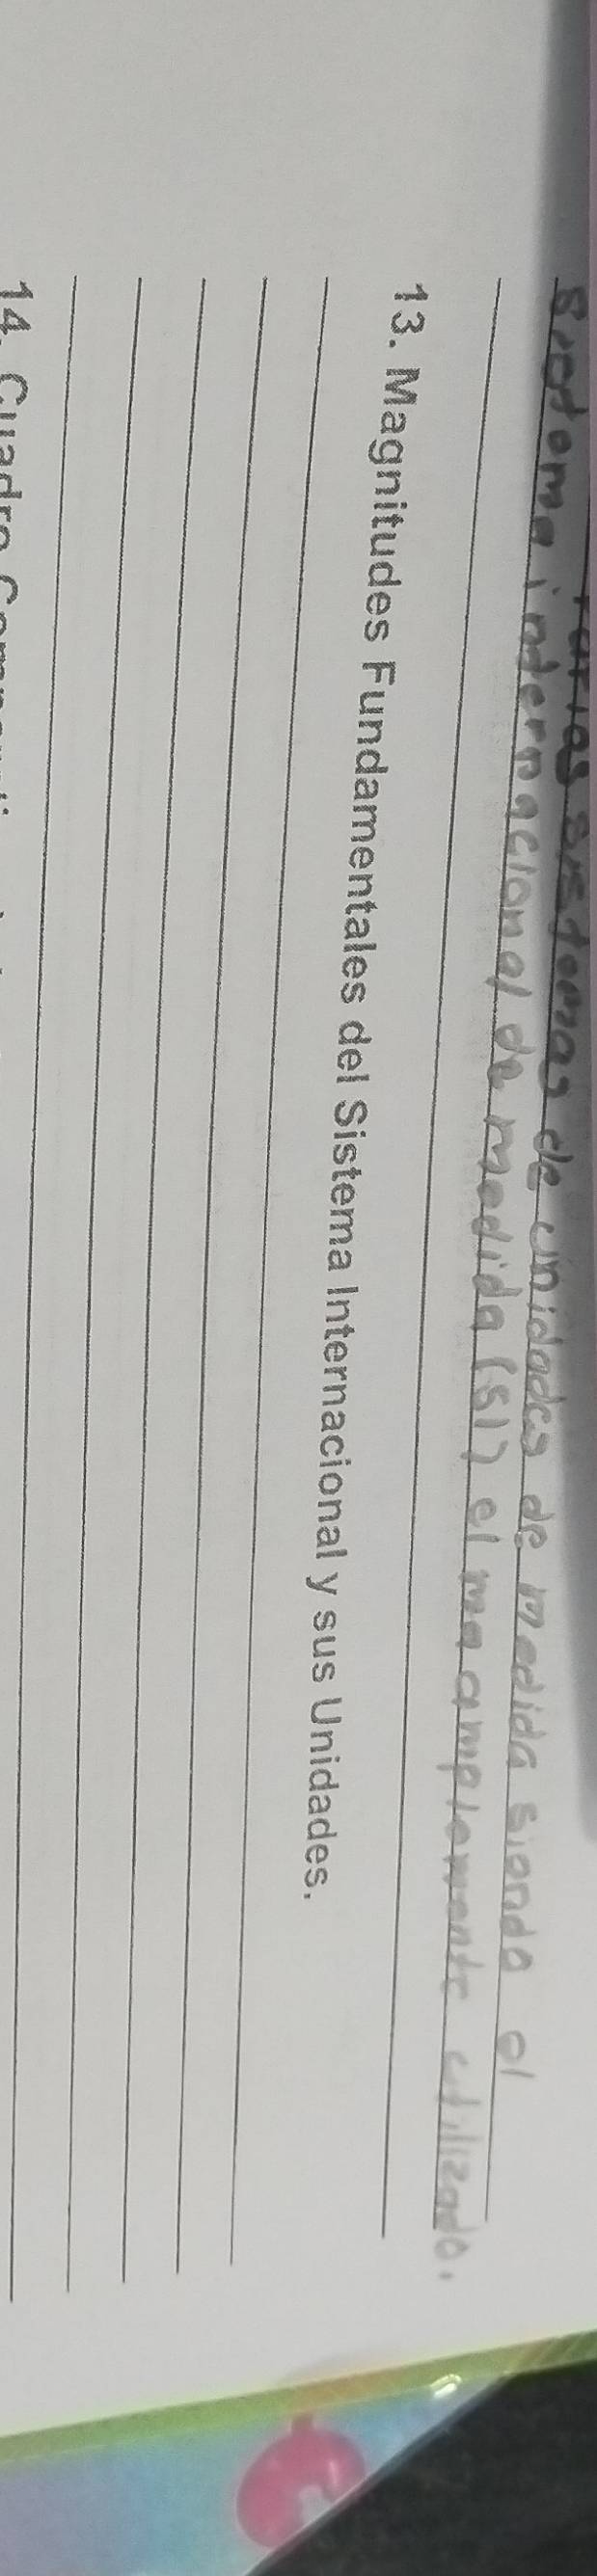 varios sistemas de unidades de medida siendo el
sistema internacional de medida (SI) el ma amplemente utilizado.
13. Magnitudes Fundamentales del Sistema Internacional y sus Unidades.
14. Cuadro